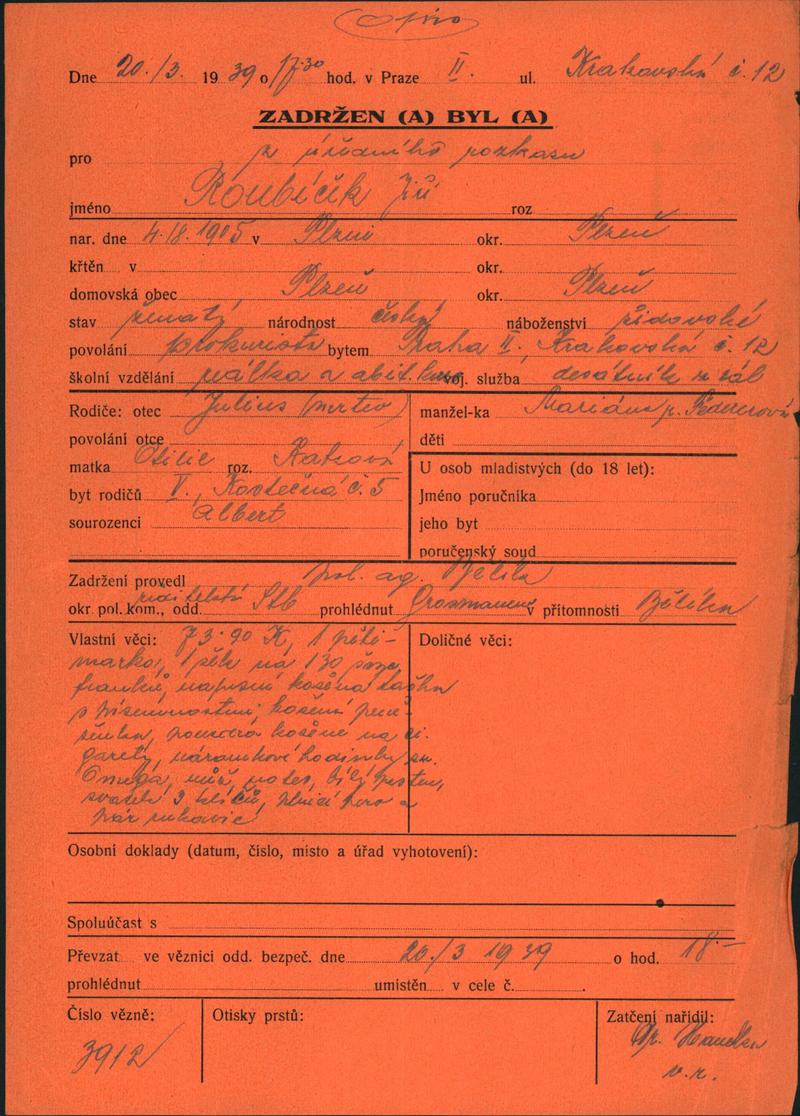 Opis
Dne 20./3. 1939 o 17.30 hod. v Praze II. ul. Krakovská č. 12
ZADRŽEN (A) BYL (A)
pro z úředního rozkazu
jméno Roubíček Jiří roz
nar. dne 4./8. 1905 v Plzni okr. Plzeň
křtěn v okr.
domovská obec Plzeň okr. Plzeň
stav ženatý národnost česká náboženství židovské
povolání prokurista bytem Praha II., Krakovská č. 12
školní vzdělání reálka a abit. kurs voj. služba desátník v zál
Rodiče: otec Julius (mrtev)
povolání otce
matka Otilie roz. Katzová
byt rodičů V., Kostečná č. 5
sourozenci Albert
manžel-ka Mariana r. Federerová
děti
U osob mladistvých (do 18 let):
Jméno poručníka
jeho byt
poručenský soud
Zadržení provedl pol. ag. Bělík
okr. pol. kom., odd. ředitelství Stb prohlédnut v přítomnosti Bělíka
Vlastní věci: 73.90 K, 1 pěti-
marka, 1 šek na 130 švýc.
franků, náprsní kožená taška
s písemnostmi, kožená peně-
ženka, pouzdro kožené na ci-
garety, náramkové hodinky zn.
Omega, nůž, notes, bílý prsten,
svazek 3 klíčů, plnicí pero a
pár rukavic
Doličné věci:
Osobní doklady (datum, číslo, místo a úřad vyhotovení):
Spoluúčast s
Převzat ve věznici odd. bezpeč. dne 20./3 1939 o hod. 18.–
prohlédnut umístěn v cele č.
Číslo vězně:
3912/
Otisky prstů:
Zatčení nařídil:
Dr.
v. r.